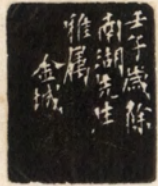 壬午歲除
南湖先生
雅属
金城